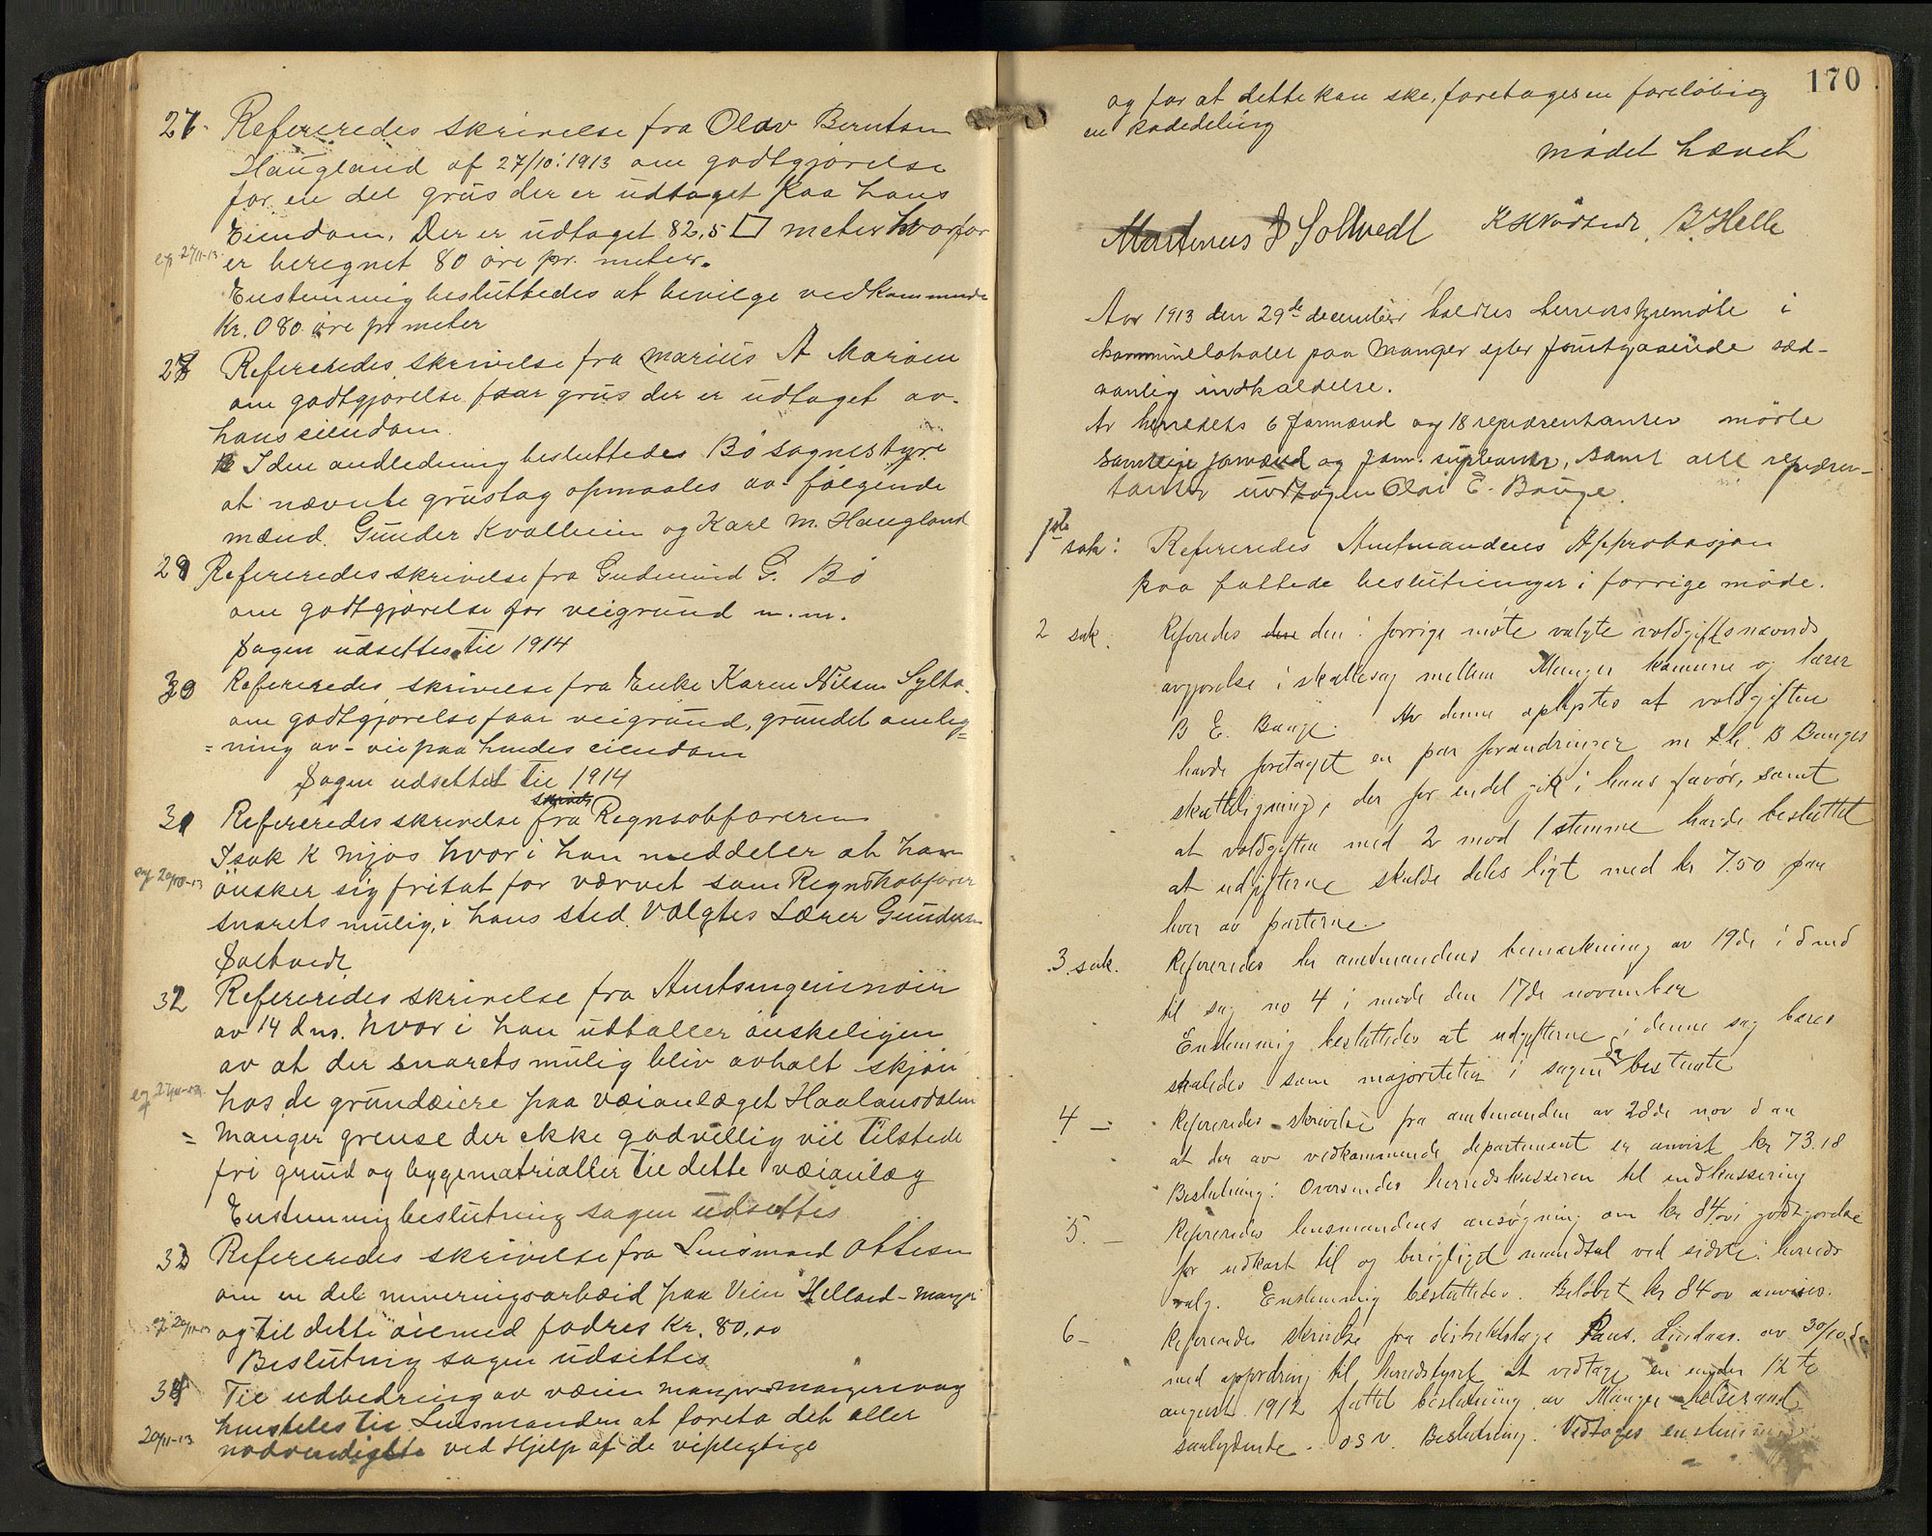 27. Refereredes skrivelse fra Olav Berntsen
Haugland af 27/10.1913 om godtgjørelse
for en del grus der er udtaget paa hans
Eiendom. Der er udtaget 82,5 □ meter hvorfor
er beregnet 80 øre pr. meter.
Enstemmig besluttedes at bevilge vedkommende
Kr. 0 80 øre pr meter
28 Refereredes skrivelse fra Marius A
om godtgjørelse faar grus der er udtaget av
hans eiendom.
I den andledning besluttedes Bø sognestyre
at nævnte grustag opmaales av følgende
mænd. Gunder Kvalheim og Karl M. Haugland
29 Refereredes skrivelse fra Gudmund G. Bø
om godtgjørelse for veigrund m.m.
Sagen udsettes til 1914
30 Refereredes skrivelse fra Enke Karen Nilsen Sylta
om godtgjørelse faar veigrund, grundet omleg=
=ning av vei paa hendes eiendom
Sagen udsettet til 1914
31 Refereredes skrivelse fra Regnsobføreren
Isak K Mjøs hvor i han meddeler at han
ønsker sig fritat for værvet som Regnskobfører
snarets mulig, i hans sted. Valgtes Lærer Gundersen
Soltvedt
32 Refereredes skrivelse fra Amtsingeniøiør
av 14 dns. hvor i han udtaller ønskeligen
av at der snarets mulig bliv avholt skjøn
hos de grundeiere paa væianlæget Haalandsdalen
= Manger grense der ekke godvillig vil tilstede
fri grund og byggematrialler til dette væianlæg
Enstemmig beslutning sagen udsettes
33 Refereredes skrivelse fra Lensmand Ottesen
om en del mineringsarbæid paa Vein Helland - Manger
og til dette øiemed fodres Kr. 80,00
Beslutning sagen udsettes
34 Til udbedring av væien manger-mangersvaag
henstiles til Lensmanden at foreta det aller
20/11-13 nødvendigste ved Hjelp af de vipligtige
170
og for at dette kan ske, foretages en foreløbig
en kodedeling
mødet hævet
Martinus J Soltvedt B. Helle
Aar 1913 den 29de december holdtes herredsstyremøte i
kommunelokalet paa Manger efter forutgaaende sæd-
vanlig indkaldelse.
Av herredets 6 formænd og 18 repræsentanter mødte
samtlige formænd og form. supleanter, samt alle repræsen-
tanter undtagen Olai E. Bauge.
1ste sak: Refereredes Amtmandens Approbasjon
paa fattede beslutninger i forrige møde.
2 sak: Referedes den i forrige møte valgte voldgiftsnævnds
avgjørelse i skattesag mellem Manger komune og lærer
B E. Bauge. Av denne oplystes at voldgiften
havde foretaget en par forandringer m h. B Bauges
skatteligning, der for endel gik i hans favør, samt
at voldgiften med 2 mod 1 stemme havde besluttet
at udgifterne skulde deles ligt med kr 7.50 paa
hver av parterne.
3. sak. Refereredes hr amtmandens bemærkning av 19de i d md
til sag no 4 i møde den 17de november
Enstemmig besluttedes at udgifterne i denne sag bæres
saaledes som majoriteten i sagen har bestemte
4 — Refereredes skrivelse fra amtmanden av 28de nov d aa
at der av vedkommende departement er anvist kr 73.18
Beslutning: Oversendes herredskasseren til indkassering
5. — Refereredes lensmandens ansøgning om kr 84.00 i godtgjørelse
for udkast til og berigtiget mandtal ved sidste herreds
valg. Enstemmig besluttedes. Beløbet kr 84 00 anvises.
6 — Refereredes skrivelse fra distriktslæge Lindaas av 30/10 d
med oppfordring til herredstyret at vedtage en under 12te
august 1912 fattet beslutning av Manger helseraad
saalydende. osv. Beslutning. Vedtages enstemmig.